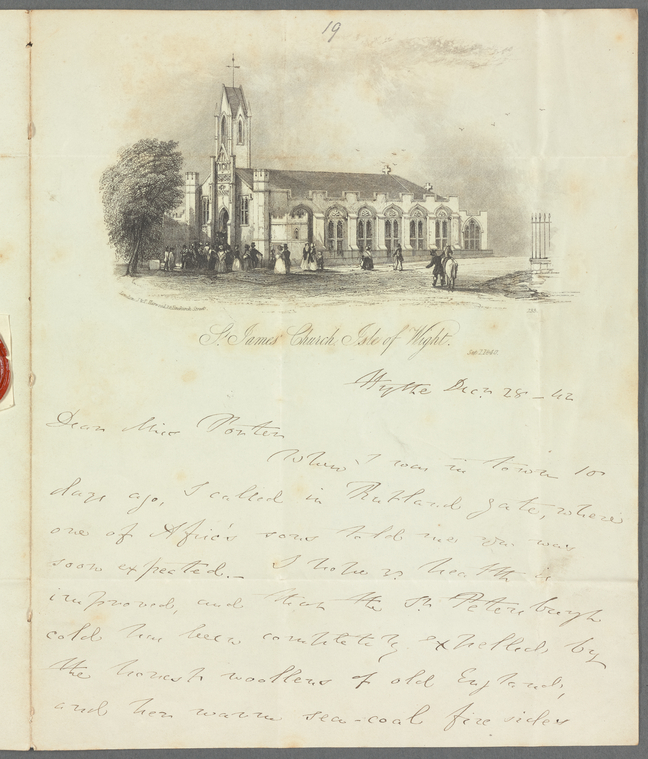 19
St. James' Church, Isle of Wight.
Hythe Decr. 28 - 42
Dear Miss Porter
When I was in town 10
days ago, I called in Rutland gate, where
one of Afric's sons told me you was
soon expected. - I hope yr health is
improved, and that the St. Petersburgh
cold has been completely expelled, by
the honest woollens of old England,
and her warm sea-coal fire sides